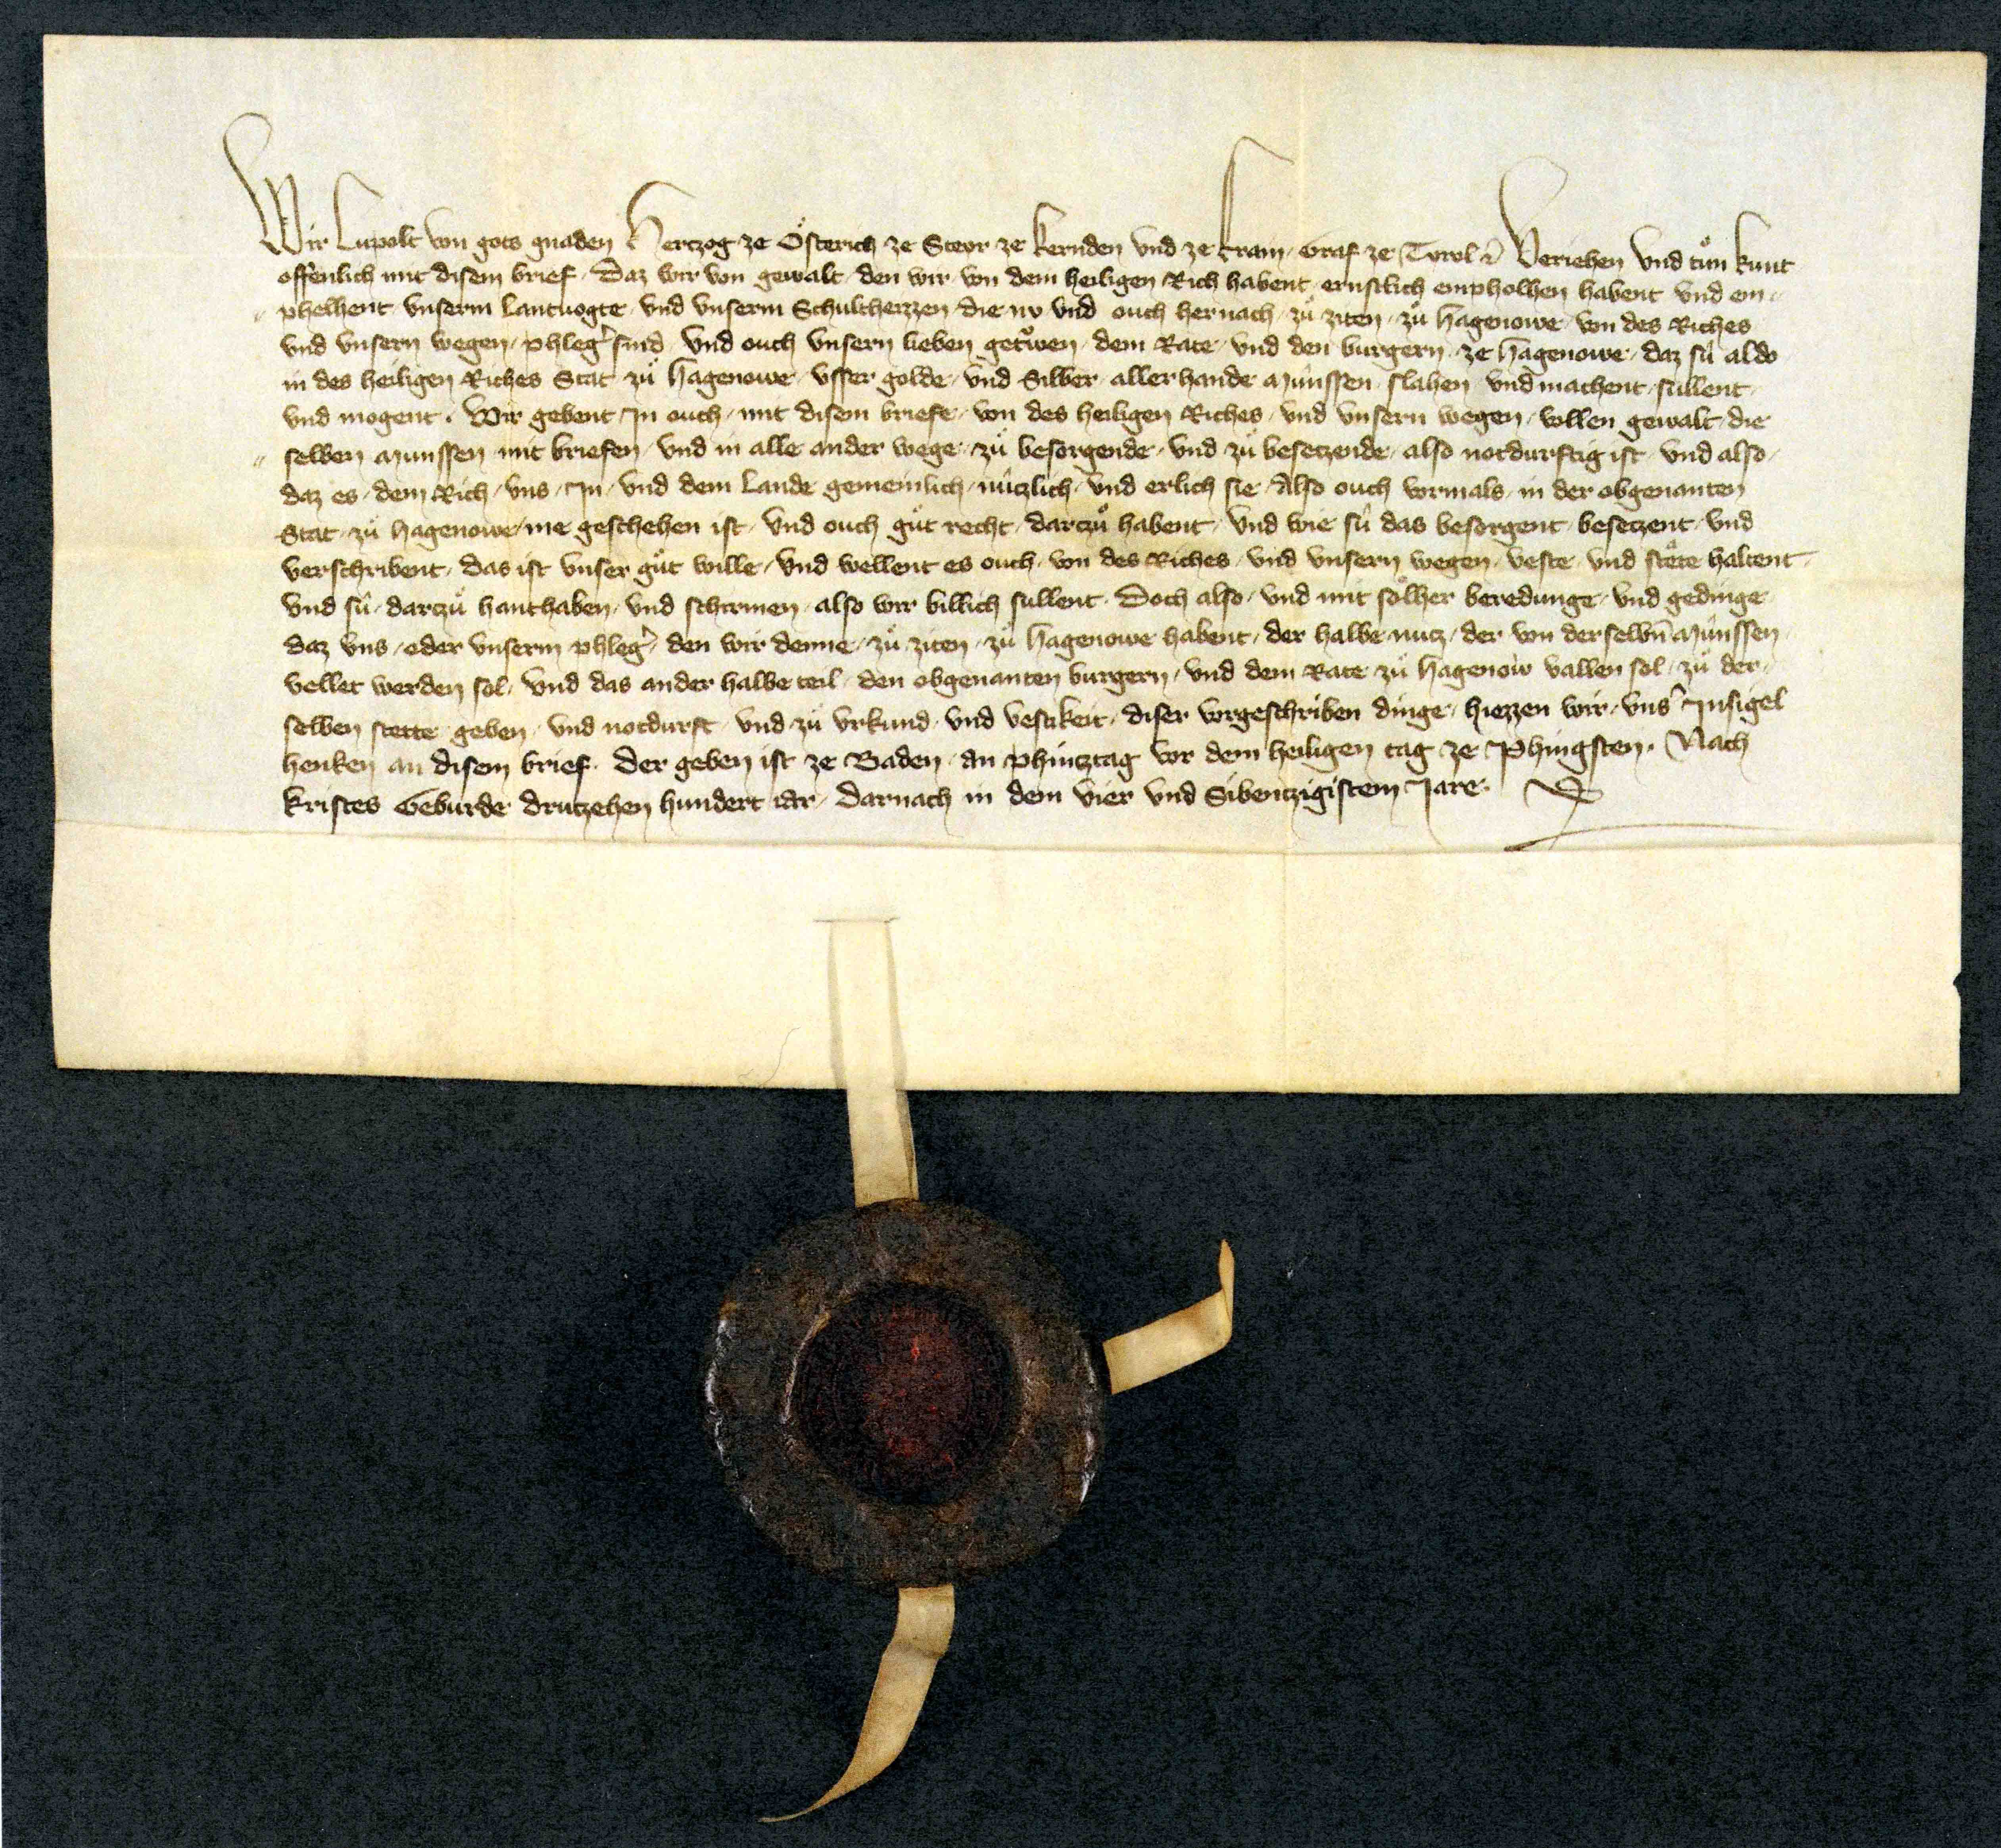 Wir Lupolt von gots gnaden Hertzog ze Österich ze Steyr ze kernden vnd ze krain Graf ze Tyrol etc Veriehen vnd tůn kunt
offenlich mit disem brief / Daz wir von gewalt / den wir von dem heiligen Rich habent ernstlich empholhen habent vnd em=
=phelhent / vnserm lantuogte / vnd vnserm Schultheizzen / die nv vnd ouch hernach / zů ziten / zů hagenowe / von des Riches
vnd vnsern wegen / phleg' sind / vnd ouch vnsern lieben getrwen / dem Rate / vnd den burgern / ze hagenowe / daz sü aldo
in des heiligen Riches Stat zů hagenowe / vsser golde / vnd Silber / aller hande münssen / slahen / vnd machent / sullent
vnd mogent / Wir gebent Jn ouch / mit disem briefe / von des heiligen Riches / vnd vnsern wegen / vollen gewalt / die
= selben münssen mit briefen / vnd in alle ander wege / zů besorgende / vnd zů besetzende / also notdurftig ist / vnd also /
daz es / dem Rich / vns / Jn / vnd dem lande gemeinlich / nützlich / vnd erlich sie / Also ouch vormals / in der obgenanten
Stat / zů hagenowe / me geschehen ist / vnd ouch gůt recht / darzů habent / vnd wie sü das besorgent / besetzent / vnd
verschribent / das ist vnser gůt wille / vnd wellent es ouch / von des Riches / vnd vnsern wegen / veste / vnd stete haltent /
vnd sü / darzů hanthaben / vnd schirmen / also wir billich sullent / Doch also / vnd mit solher beredunge / vnd gedinge
daz vns / oder vnserm phleg' / den wir denne / zů ziten / zů hagenowe habent / der halbe nutz / der von derselbn münssen
vellet werden sol / vnd das ander halbe teil / den obgenanten burgern / vnd dem Rate zů hagenow vallen sol / zů der /
selben stette geben / vnd notdurft / vnd zů vrkund / vnd vestikeit / diser vorgeschriben dinge / hiezzen wir / vns' Jnsigel
henken an disem brief / der geben ist ze Baden / an phintztag vor dem heiligen tag ze Phingsten / Nach
kristes Geburde drutzehen hundert iar / darnach in dem vier vnd Sibentzigistem Jare /